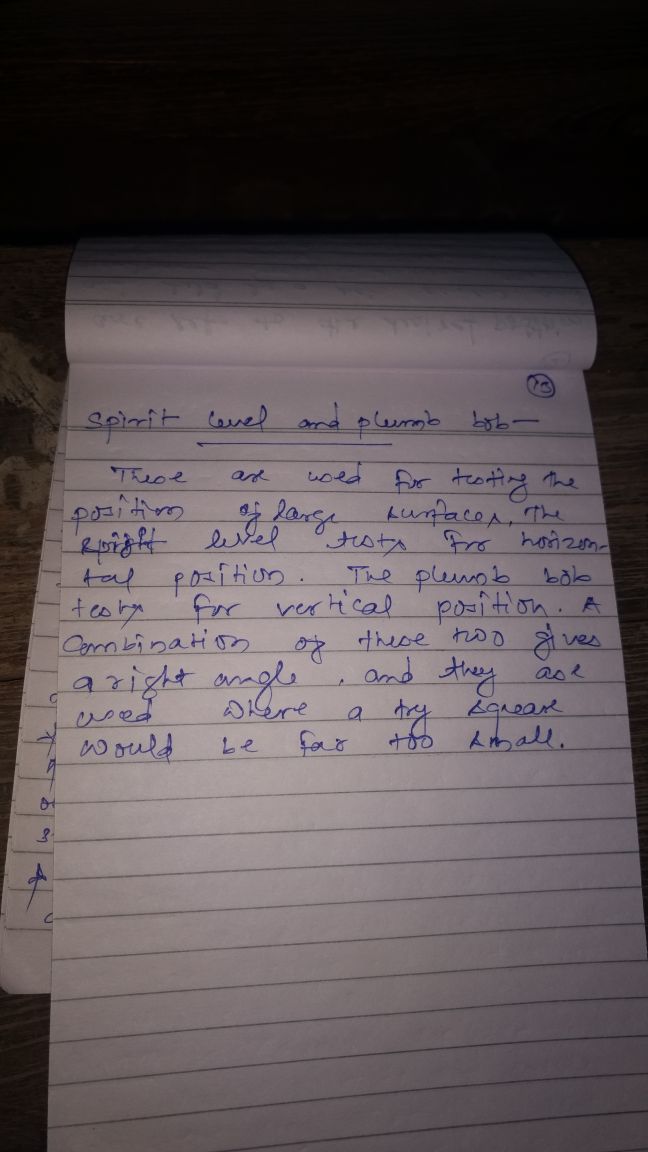 13
Spirit level and plumb bob—
These are used for testing the
position of large surfaces, The
spirit level tests for horizon-
tal position. The plumb bob
tests for vertical position. A
Combination of these two gives
a right angle, and they are
used where a try square
would be far too small.